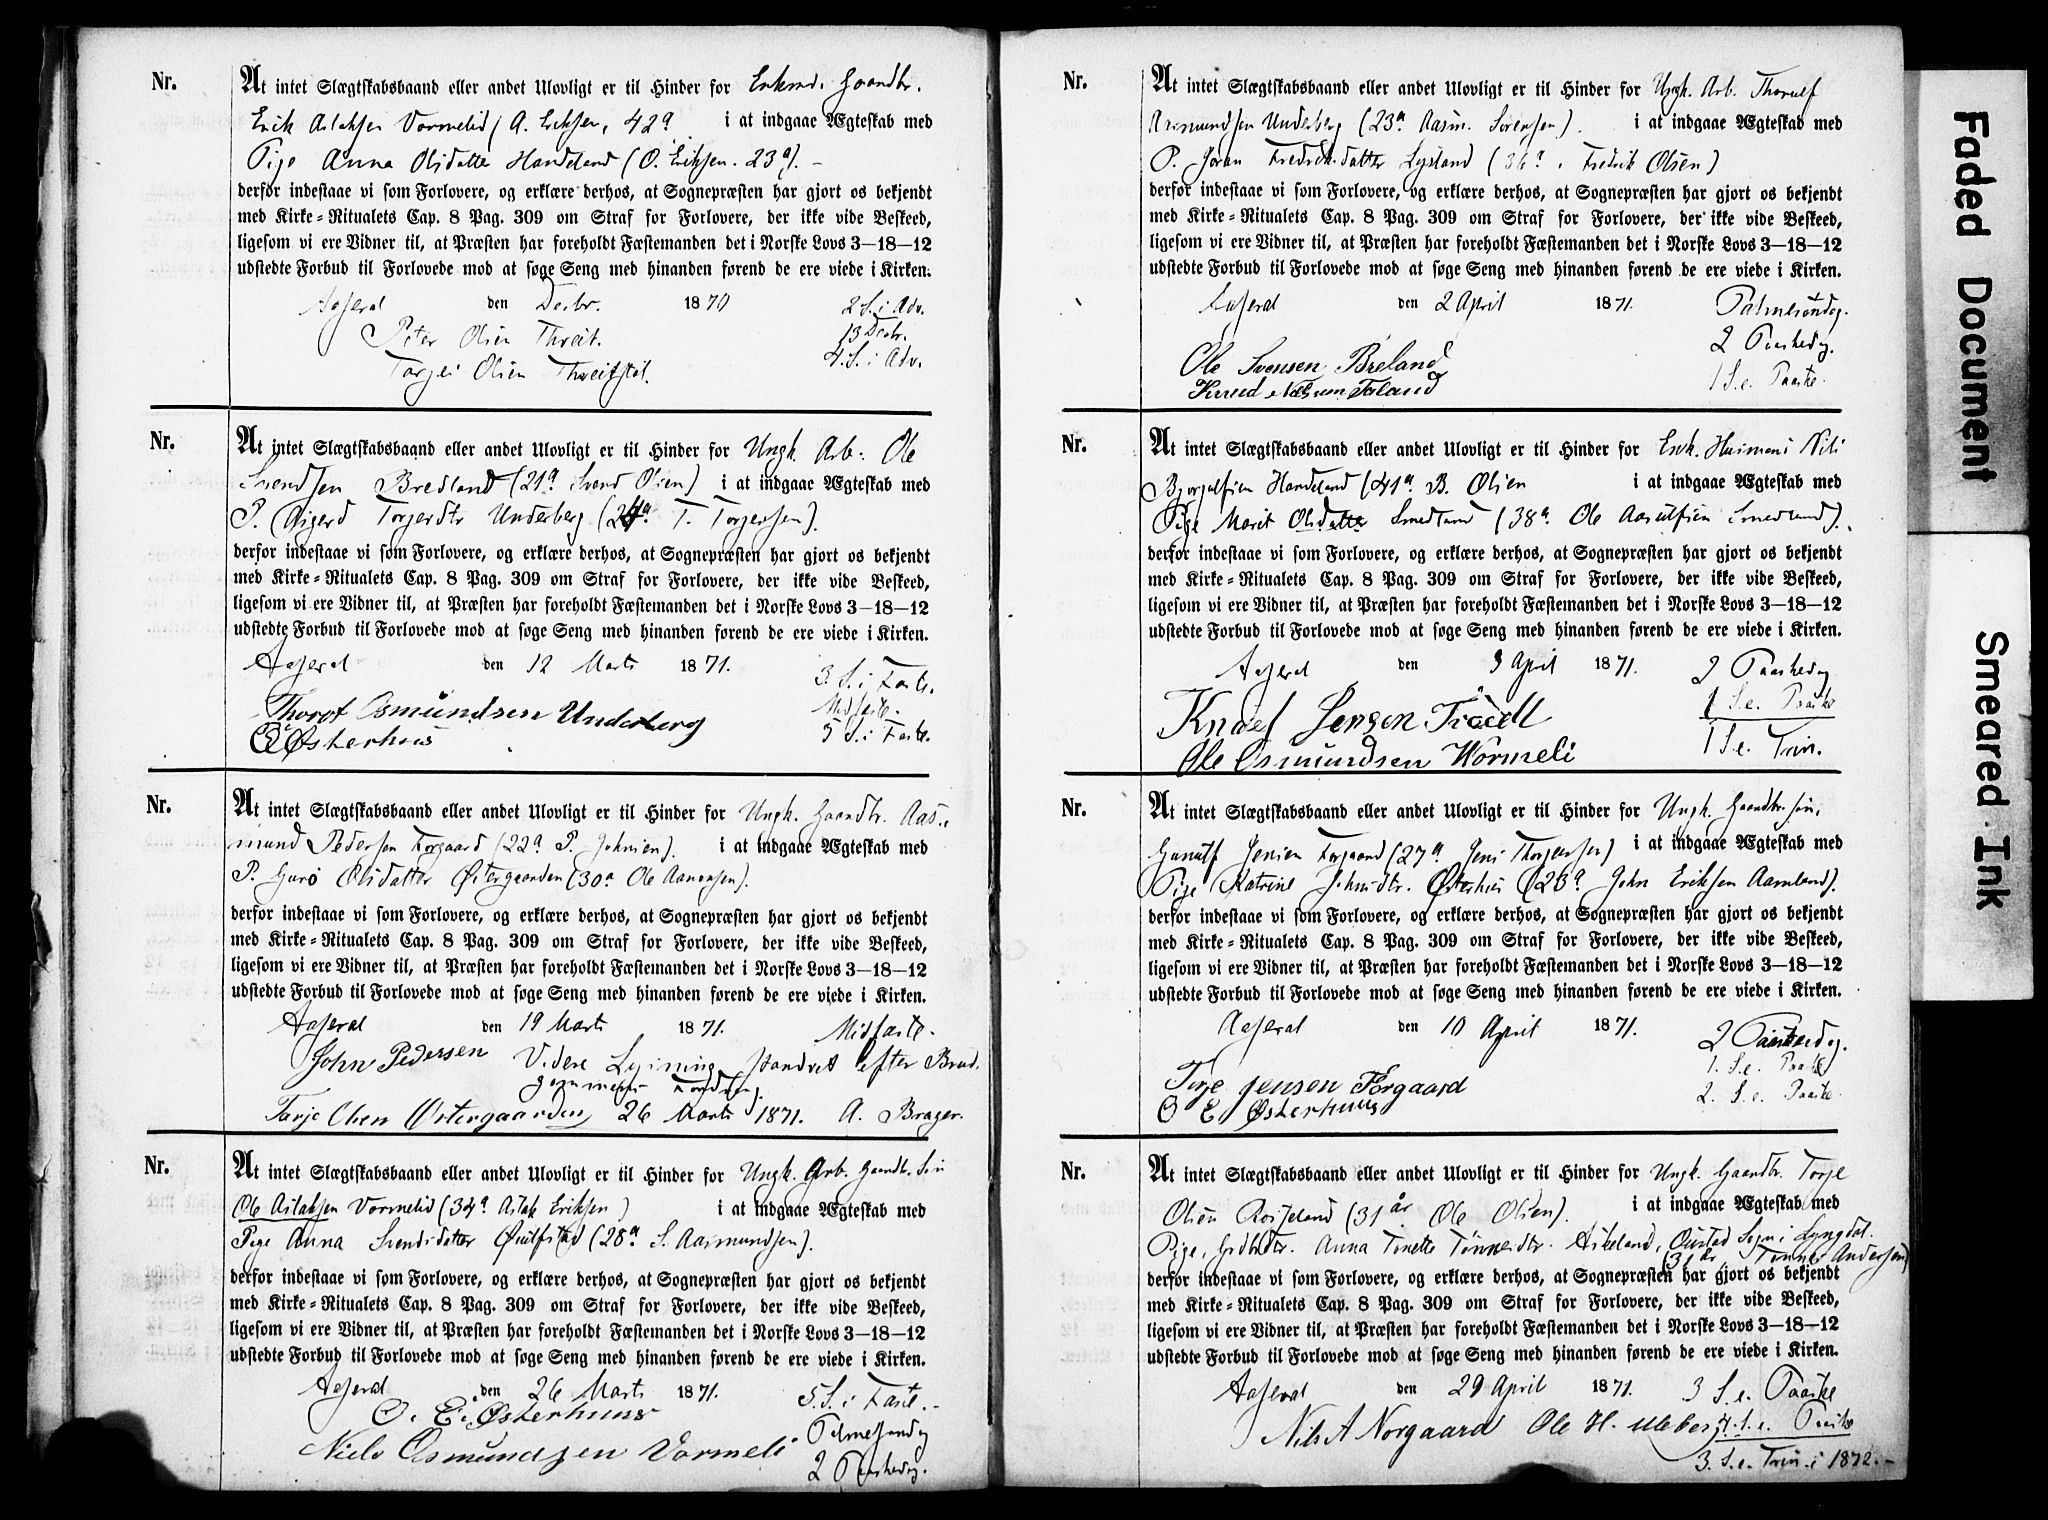 Nr.
At intet Slægtskabsbaand eller andet Ulovligt er til Hinder for Enkmd. Gaardbr.
Erik Aslaksen Vormelid (A. Eriksen, 42a i at indgaae Ægteskab med
Pige Anna Olsdatter Handeland (O. Eriksen. 23a). -
derfor indestaae vi som Forlovere, og erklære derhos, at Sognepræsten har gjort os bekjendt
med Kirke=Ritualets Cap. 8 Pag. 309 om Straf for Forlovere, der ikke vide Beskeed,
ligesom vi ere Vidner til, at Præsten har foreholdt Fæstemanden det i Norske Lovs 3—18—12
udstedte Forbud til Forlovede mod at søge Seng med hinanden førend de ere viede i Kirken.
Aaseral den Decbr. 1870 2 S. i Adv.
Peter Olsen Thveit. 13 Decbr.
Torjei Olsen 4. S. i Adv.
Nr.
At intet Slægtskabsbaand eller andet Ulovligt er til Hinder for Ungk. Arb. Ole
Svendsen Bredland (21a Svend Olsen) i at indgaae Ægteskab med
P. Sigerd Torjerdtr Underberg (24a T. Torjersen).
derfor indestaae vi som Forlovere, og erklære derhos, at Sognepræsten har gjort os bekjendt
med Kirke=Ritualets Cap. 8 Pag. 309 om Straf for Forlovere, der ikke vide Beskeed,
ligesom vi ere Vidner til, at Præsten har foreholdt Fæstemanden det i Norske Lovs 3—18—12
udstedte Forbud til Forlovede mod at søge Seng med hinanden førend de ere viede i Kirken.
Aaseral den 12 Marts 1871. 3. S. i Faste.
Osmundsen Underberg Midfaste.
Østerhus 5 S. i Faste.
Nr.
At intet Slægtskabsbaand eller andet Ulovligt er til Hinder for Ungk. Gaardbr. Aas-
mund Pedersen Forgaard (22a P. Johnsen). i at indgaae Ægteskab med
P. Guro Olsdatter Østergaarden (30a Ole Aanensen).
derfor indestaae vi som Forlovere, og erklære derhos, at Sognepræsten har gjort os bekjendt
med Kirke=Ritualets Cap. 8 Pag. 309 om Straf for Forlovere, der ikke vide Beskeed,
ligesom vi ere Vidner til, at Præsten har foreholdt Fæstemanden det i Norske Lovs 3—18—12
udstedte Forbud til Forlovede mod at søge Seng med hinanden førend de ere viede i Kirken.
Aaseral den 19 Marts 1871. Midfaste.
John Pedersen Videre Lysning standset efter Brud-
gommens Fordring.
Torje Olsen Østergaarden 26 Marts 1871. A. Brager.
Nr.
At intet Slægtskabsbaand eller andet Ulovligt er til Hinder for Ungk. Arb. Gaardbr. Søn
Ole Aslaksen Vormelid (34a Aslak Eriksen) i at indgaae Ægteskab med
Pige Anna Svendsdatter (28a S. Aasmundsen).
derfor indestaae vi som Forlovere, og erklære derhos, at Sognepræsten har gjort os bekjendt
med Kirke=Ritualets Cap. 8 Pag. 309 om Straf for Forlovere, der ikke vide Beskeed,
ligesom vi ere Vidner til, at Præsten har foreholdt Fæstemanden det i Norske Lovs 3—18—12
udstedte Forbud til Forlovede mod at søge Seng med hinanden førend de ere viede i Kirken.
Aaseral den 26 Marts 1871. 5. S. i Faste. -
O. E. Østerhuus Palmesøndag
Niels Osmundsen Vormeli 2 Paaskedag.
Nr.
At intet Slægtskabsbaand eller andet Ulovligt er til Hinder for Ungk. Arb. Thorulf
Aasmundsen Underberg (23a Aasm. Sørensen). i at indgaae Ægteskab med
P. Joran Fredriksdatter Lysland (36a, Fredrik Olsen)
derfor indestaae vi som Forlovere, og erklære derhos, at Sognepræsten har gjort os bekjendt
med Kirke=Ritualets Cap. 8 Pag. 309 om Straf for Forlovere, der ikke vide Beskeed,
ligesom vi ere Vidner til, at Præsten har foreholdt Fæstemanden det i Norske Lovs 3—18—12
udstedte Forbud til Forlovede mod at søge Seng med hinanden førend de ere viede i Kirken.
Aaseral den 2 April 1871. Palmesøndag.
2 Paaskedag.
Ole Svensen Breland 1 S. e. Paaske.
Knud
Nr.
At intet Slægtskabsbaand eller andet Ulovligt er til Hinder for Enk. Husmand Nils
Bjorgulfsen Handeland (41a B. Olsen i at indgaae Ægteskab med
Pige Marit Olsdatter Smedland (38a Ole Aasulfsen Smedland).
derfor indestaae vi som Forlovere, og erklære derhos, at Sognepræsten har gjort os bekjendt
med Kirke=Ritualets Cap. 8 Pag. 309 om Straf for Forlovere, der ikke vide Beskeed,
ligesom vi ere Vidner til, at Præsten har foreholdt Fæstemanden det i Norske Lovs 3—18—12
udstedte Forbud til Forlovede mod at søge Seng med hinanden førend de ere viede i Kirken.
Aaseral den 9 April 1871. 2 Paaskedag
1 S. e. Paaske
Jensen 1 S. e. Trin.
Ole Osmundsen Wormeli
Nr.
At intet Slægtskabsbaand eller andet Ulovligt er til Hinder for Ungk. Gaardbr. søn,
Gunulf Jensen Forgaard (27a Jens Thorjersen) i at indgaae Ægteskab med
Pige Katrine Johnsdtr. Østerhus (23a John Eriksen Aamland).
derfor indestaae vi som Forlovere, og erklære derhos, at Sognepræsten har gjort os bekjendt
med Kirke=Ritualets Cap. 8 Pag. 309 om Straf for Forlovere, der ikke vide Beskeed,
ligesom vi ere Vidner til, at Præsten har foreholdt Fæstemanden det i Norske Lovs 3—18—12
udstedte Forbud til Forlovede mod at søge Seng med hinanden førend de ere viede i Kirken.
Aaseral den 10 April 1871. 2 Paaskedag.
1. S. e. Paaske
Torje Jensen Forgaard 2. S. e. Paaske.
O E. Østerhuus
Nr.
At intet Slægtskabsbaand eller andet Ulovligt er til Hinder for Ungk. Gaardbr. Torje
Olsen Rosseland (31 år Ole Olsen). i at indgaae Ægteskab med
Pige, Grdbrdtr. Anna Tonette Tønnesdtr. Askeland, Qvåstad Sogn i Lyngdal.
(31 år Tønnes Andersen)
derfor indestaae vi som Forlovere, og erklære derhos, at Sognepræsten har gjort os bekjendt
med Kirke=Ritualets Cap. 8 Pag. 309 om Straf for Forlovere, der ikke vide Beskeed,
ligesom vi ere Vidner til, at Præsten har foreholdt Fæstemanden det i Norske Lovs 3—18—12
udstedte Forbud til Forlovede mod at søge Seng med hinanden førend de ere viede i Kirken.
Aaseral den 29 April 1871. 3 S. e. Paaske
Nils A Norgaard Ole H. Ueberg 4. S. e. Paaske
3. S. e. Trin. i 1872. -
Faded Document
Smeared Ink